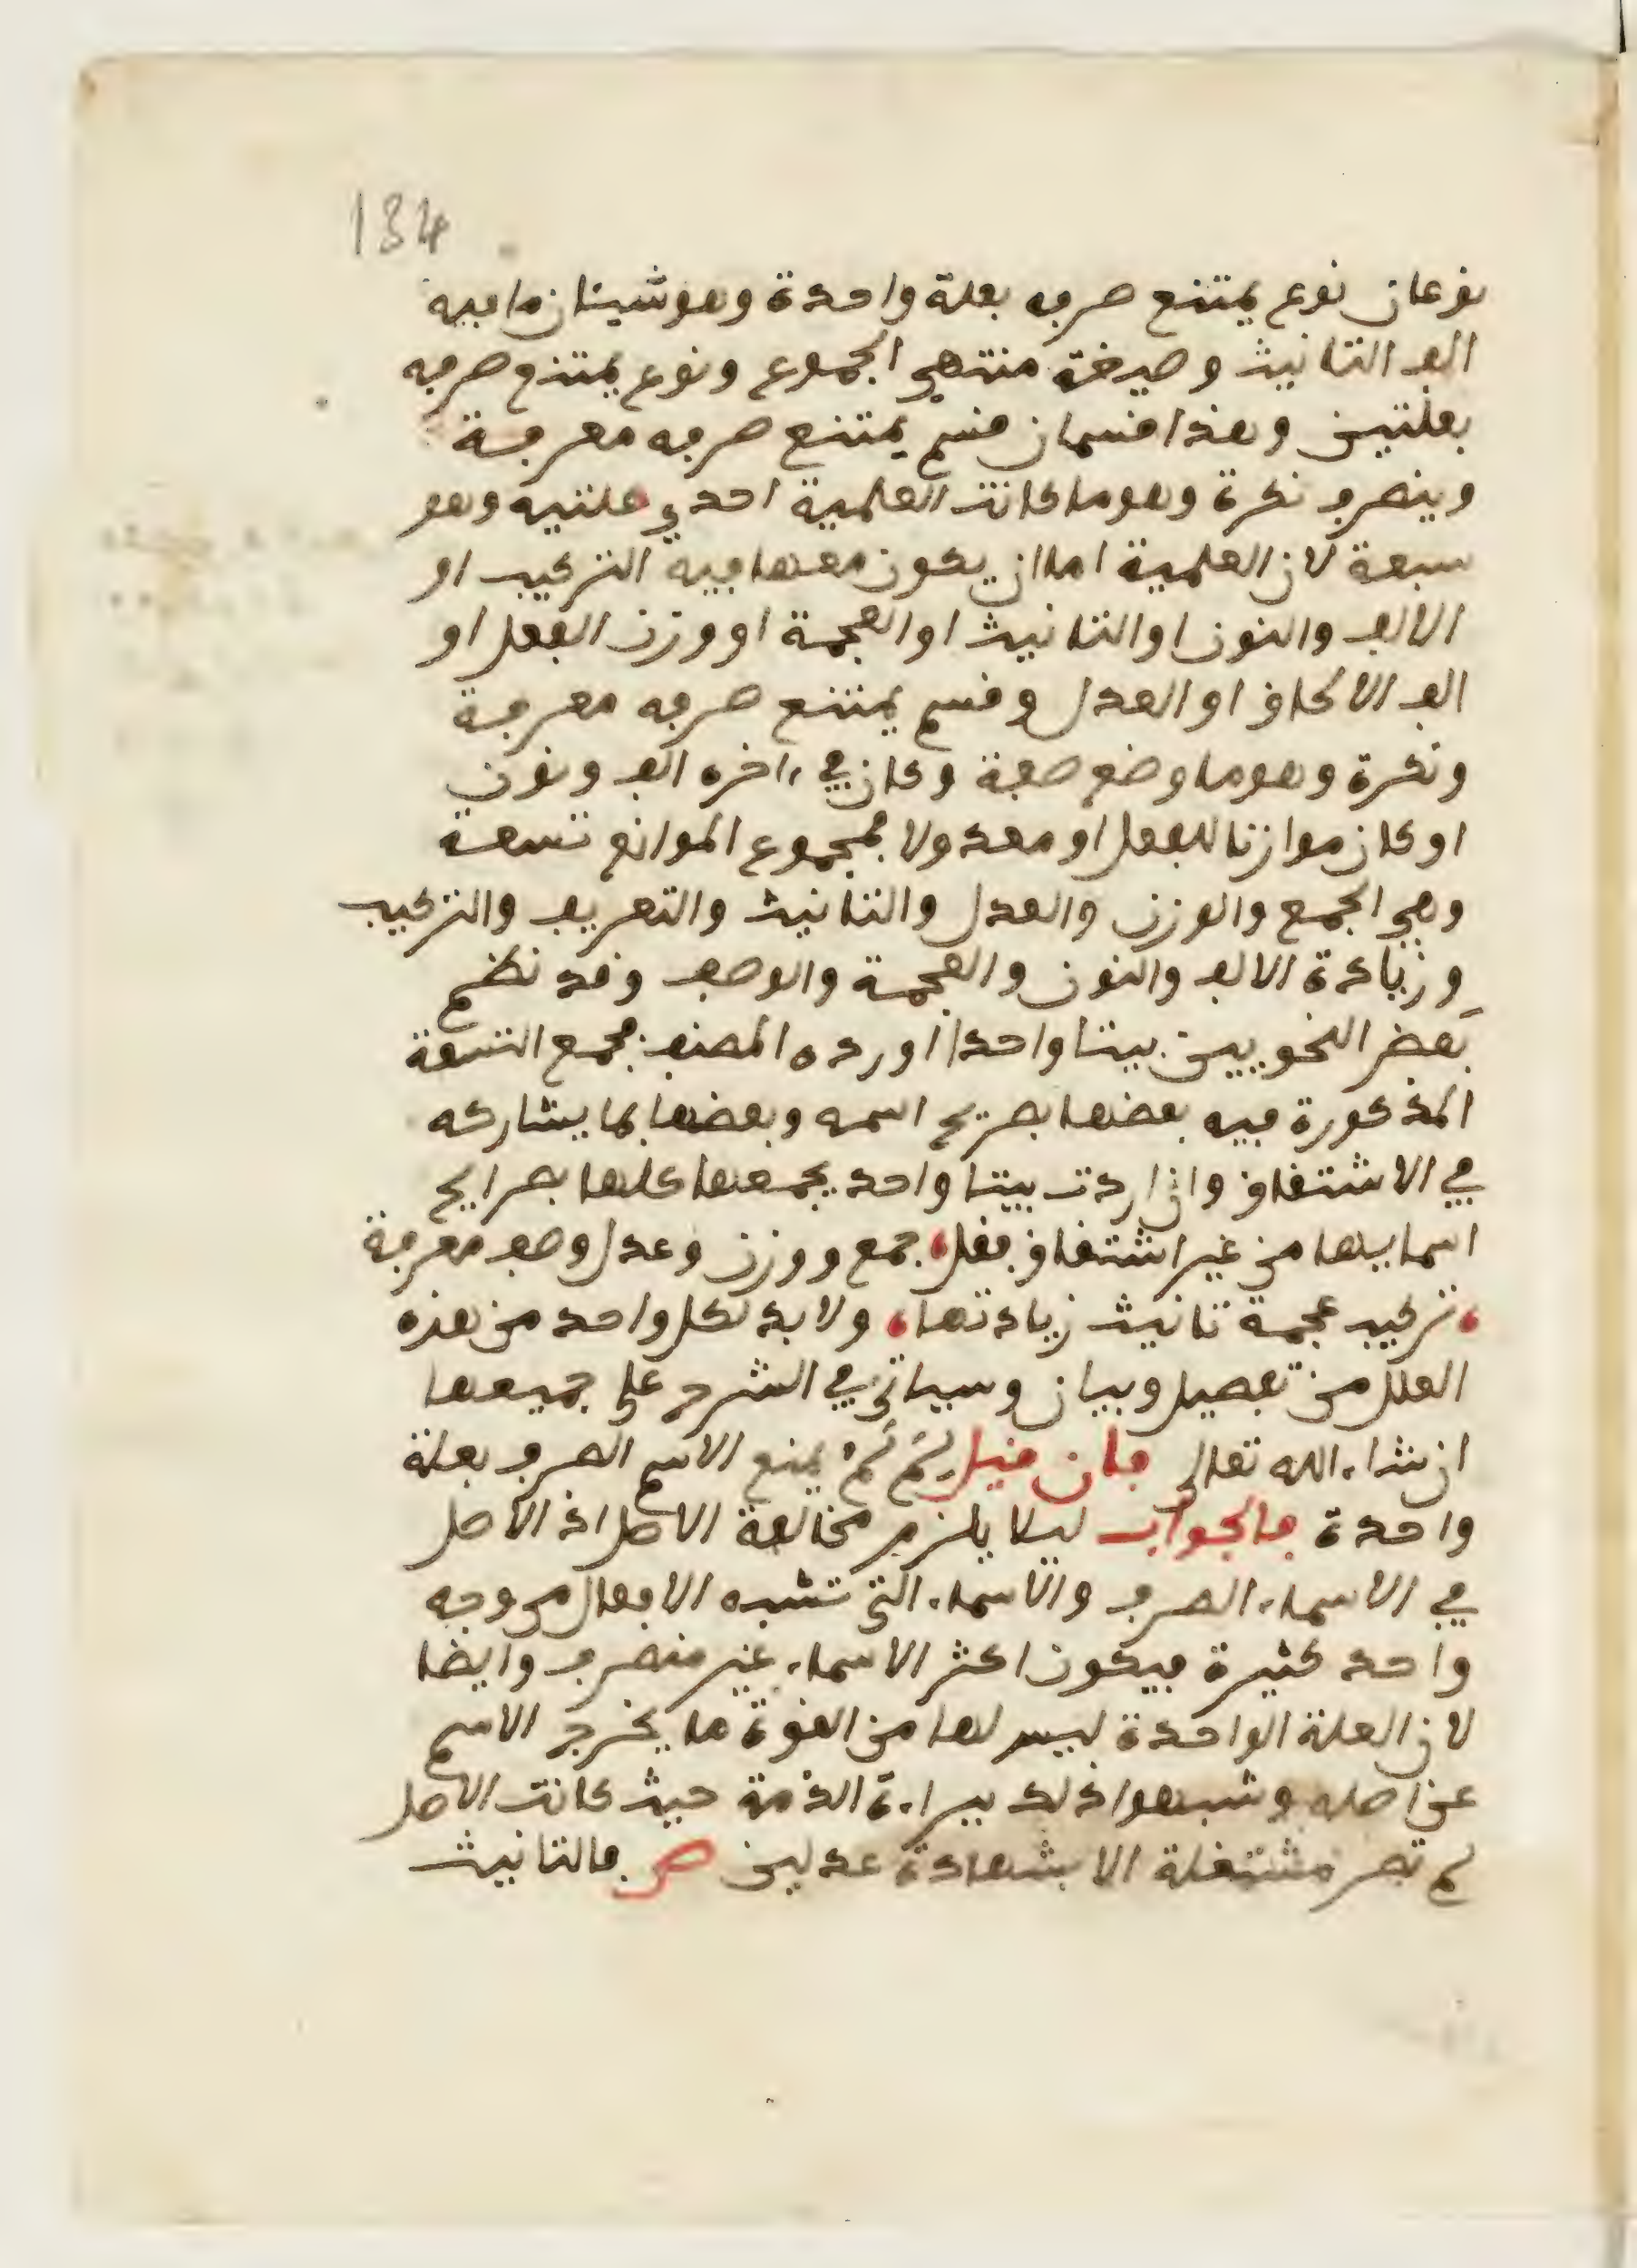 134
نوعان نوع يمتنع صرفه بعلة واحدة وهو شيئان ما فيه
الف التانيث وصيغة منتهى الجموع ونوع يمتنع صرفه
بعلتين وهذا قسمان قسم يمتنع صرفه معرفة
وينصرف نكرة وهو ما كانت العلمية احدي علتيه وهو
سبعة لان العلمية اما ان يكون معها فيه التركيب او
الالف والنون او التانيث او العجمة او وزن الفعل او
الف الالحاق او العدل وقسم يمتنع صرفه معرفة
ونكرة وهو ما وضع صفة وكان في ءاخره الف ونون
او كان موازنا للفعل او معدولا فمجموع الموانع تسعة
وهي الجمع والوزن والعدل والتانيث والتعريف والتركيب
وزيادة الالف والنون والعجمة والوصف وقد نظم
بعض النحويين بيتا واحدا اورده المصنف بجمع التسعة
المذكورة فيه بعضها بصريح اسمه وبعضها بما يشاركه
في الاشتقاق وان اردت بيتا واحد يجمعها كلها بصرايح
اسمايها من غير اشتقاق فقل، جمع ووزن وعدل وصف معرفة
، تركيب عجمة تانيث زيادتها، ولا بد لكل واحد من هذه
العلل من تفصيل وبيان وسياتي في الشرح على جميعها
ان شاء الله تعالى فان قيل لِمَ لَمْ يمنع الاسم الصرف بعلة
واحدة فالجواب ليلا يلزم مخالفة الاصل اذ الاصل
في الاسماء الصرف والاسماء التي تشبه الافعال من وجه
واحد كثيرة فيكون اكثر الاسماء غير منصرف وايضا
لان العلة الواحدة ليس لها من القوة ما يخرج الاسم
عن اصله وشبهوا ذلك ببراءة الذمة حيث كانت الاصل
لم تصر مشتغلة الا بشهادة عدلين ص فالتانيث